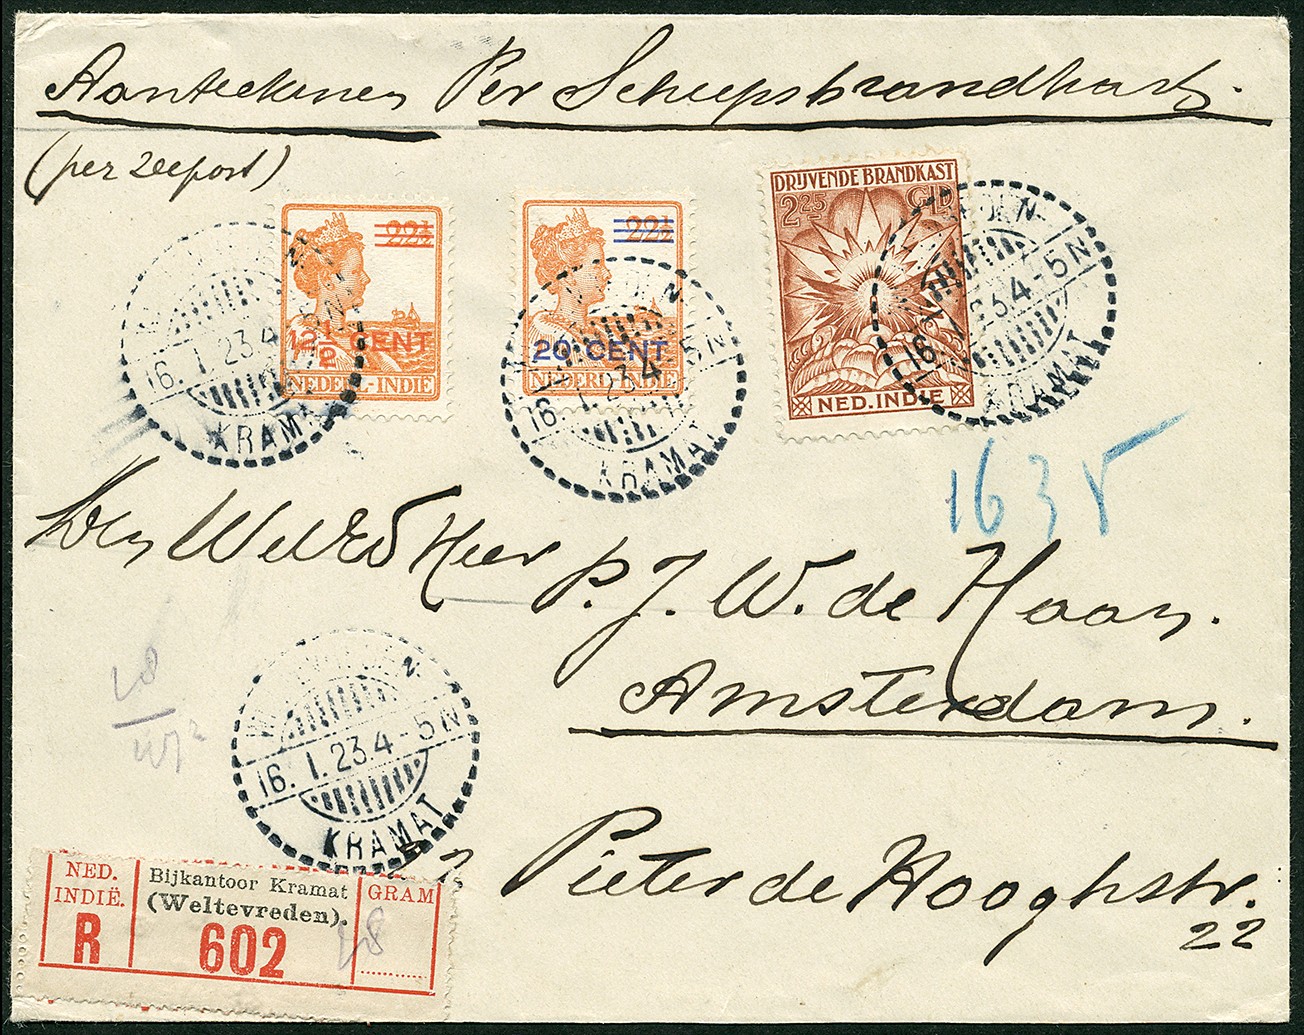 Aanteekenen Per Scheepsbrandkast.
(per zeepost)
22½
12½ CENT
NEDERL.-INDIË
22½
20 CENT
NEDERL.-INDIË
DRIJVENDE BRANDKAST
2.25 GLD
NED. INDIE
16.1.23.4-5N
KRAMAT
16.1.23.4-5N
KRAMAT
16.1.23.4-5N
KRAMAT
1635
Den WelEd Heer P. J. W. de Haan.
Amsterdam.
16.1.23.4-5N
KRAMAT
Pieter de Hooghstr.
22
NED. INDIË.
R
Bijkantoor Kramat
(Weltevreden).
602
GRAM